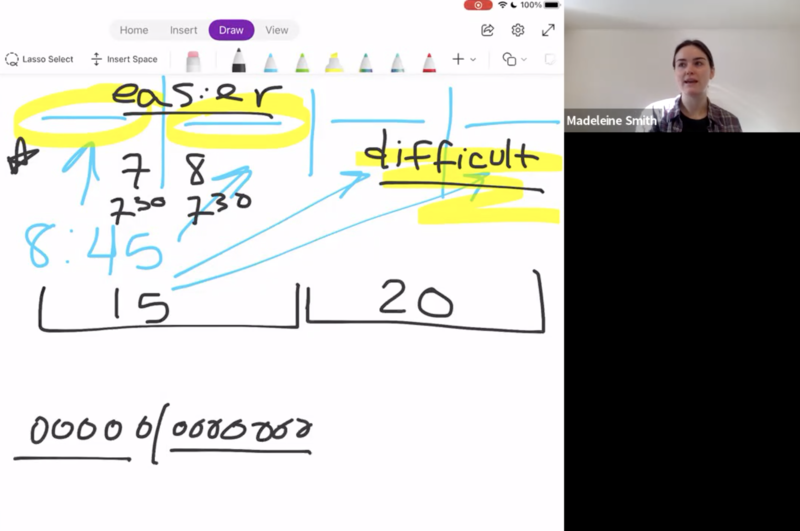 100%
Home Insert Draw View
Lasso Select Insert Space
Madeleine Smith
easier
difficult
7 8
7 30 7 30
8:45
15 20
00000/00000000